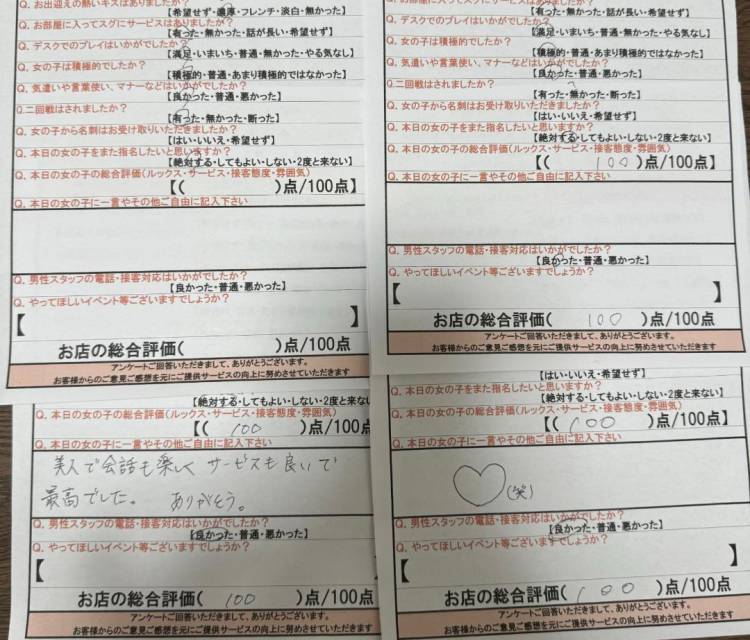 Q. お出迎えの熱いキスはありましたか?
【希望せず・濃厚・フレンチ・淡白・無かった】
Q. お部屋に入ってスグにサービスはありましたか?
【有った・無かった・話が長い・希望せず】
Q. デスクでのプレイはいかがでしたか?
【満足・いまいち・普通・無かった・やる気なし】
Q. 女の子は積極的でしたか?
【積極的・普通・あまり積極的ではなかった】
Q. 気遣いや言葉使い、マナーなどはいかがでしたか?
【良かった・普通・悪かった】
Q.二回戦はされましたか?
【有った・無かった・断った】
Q. 女の子から名刺はお受け取りいただきましたか?
【はい・いいえ・希望せず】
Q. 本日の女の子をまた指名したいと思いますか?
【絶対する・してもよい・しない・2度と来ない】
Q. 本日の女の子の総合評価(ルックス・サービス・接客態度・雰囲気)
【( )点/100点】
Q. 本日の女の子に一言やその他ご自由に記入下さい
Q. 男性スタッフの電話・接客対応はいかがでしたか?
【良かった・普通・悪かった】
Q. やってほしいイベント等ございますでしょうか?
【 】
お店の総合評価( )点/100点
アンケートご回答いただきまして、ありがとうございます。
お客様からのご意見ご感想を元にご提供サービスの向上に努めさせていただきます
【有った・無かった・話が長い・希望せず】
Q. デスクでのプレイはいかがでしたか?
【満足・いまいち・普通・無かった・やる気なし】
Q. 女の子は積極的でしたか?
【積極的・普通・あまり積極的ではなかった】
Q. 気遣いや言葉使い、マナーなどはいかがでしたか?
【良かった・普通・悪かった】
Q.二回戦はされましたか?
【有った・無かった・断った】
Q. 女の子から名刺はお受け取りいただきましたか?
【はい・いいえ・希望せず】
Q. 本日の女の子をまた指名したいと思いますか?
【絶対する・してもよい・しない・2度と来ない】
Q. 本日の女の子の総合評価(ルックス・サービス・接客態度・雰囲気)
【( 100 )点/100点】
Q. 本日の女の子に一言やその他ご自由に記入下さい
Q. 男性スタッフの電話・接客対応はいかがでしたか?
【良かった・普通・悪かった】
Q. やってほしいイベント等ございますでしょうか?
【 】
お店の総合評価( 100 )点/100点
アンケートご回答いただきまして、ありがとうございます。
お客様からのご意見ご感想を元にご提供サービスの向上に努めさせていただきます
【絶対する・してもよい・しない・2度と来ない】
Q. 本日の女の子の総合評価(ルックス・サービス・接客態度・雰囲気)
【( 100 )点/100点】
Q. 本日の女の子に一言やその他ご自由に記入下さい
美人で会話も楽しく サービスも良いで
最高でした。 ありがそう。
Q. 男性スタッフの電話・接客対応はいかがでしたか?
【良かった・普通・悪かった】
Q. やってほしいイベント等ございますでしょうか?
【 】
お店の総合評価( 100 )点/100点
アンケートご回答いただきまして、ありがとうございます。
お客様からのご意見ご感想を元にご提供サービスの向上に努めさせていただきます
【はい・いいえ・希望せず】
Q. 本日の女の子をまた指名したいと思いますか?
【絶対する・してもよい・しない・2度と来ない】
Q. 本日の女の子の総合評価(ルックス・サービス・接客態度・雰囲気)
【( 100 )点/100点】
Q. 本日の女の子に一言やその他ご自由に記入下さい
(笑)
Q. 男性スタッフの電話・接客対応はいかがでしたか?
【良かった・普通・悪かった】
Q. やってほしいイベント等ございますでしょうか?
【 】
お店の総合評価( 100 )点/100点
アンケートご回答いただきまして、ありがとうございます。
お客様からのご意見ご感想を元にご提供サービスの向上に努めさせていただきます